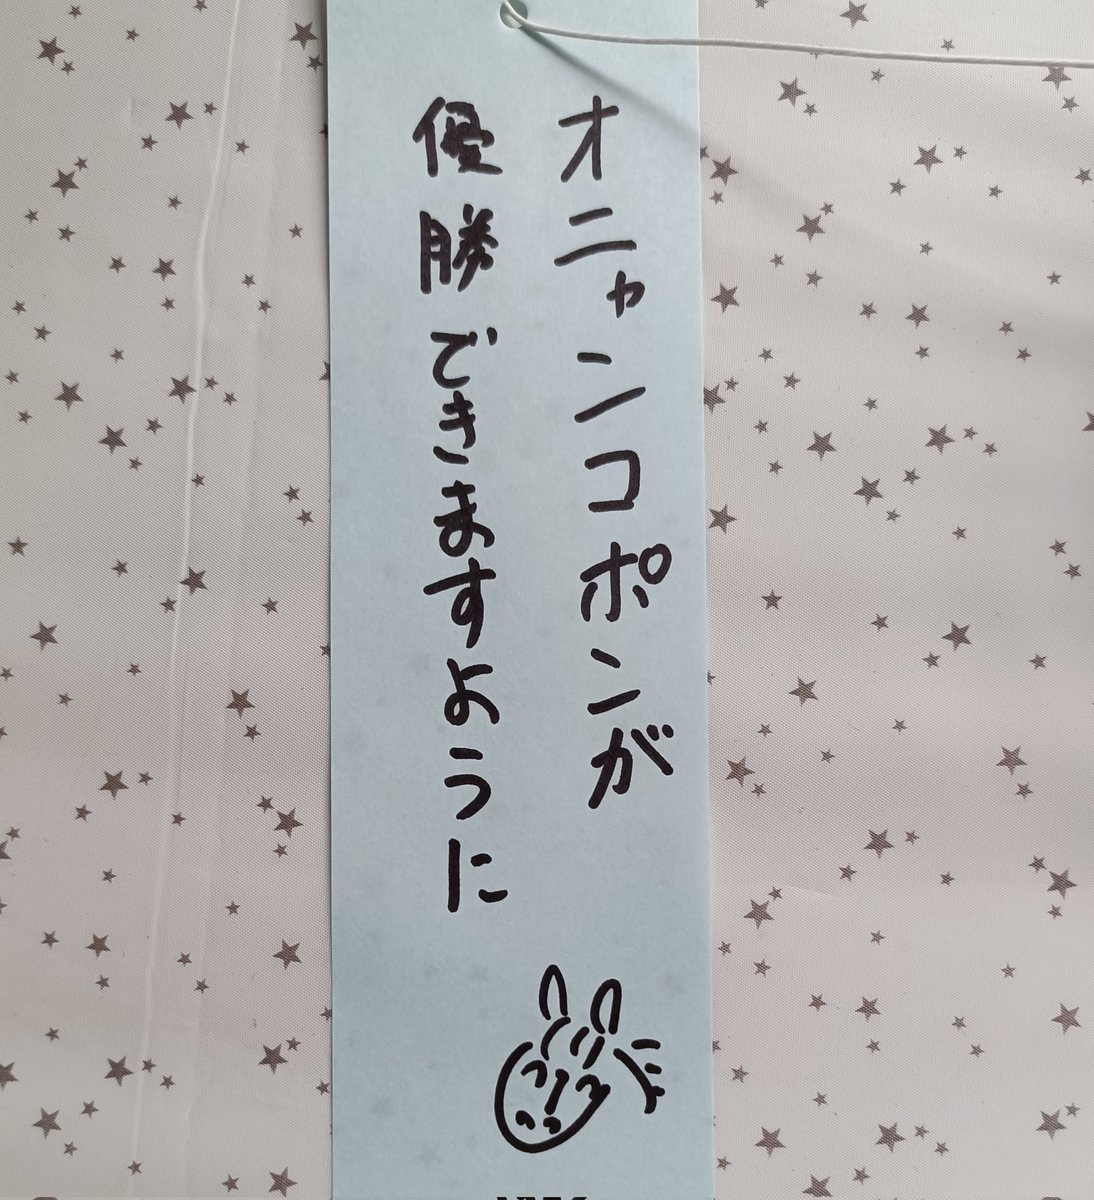 オニャンコポンが
優勝できますように